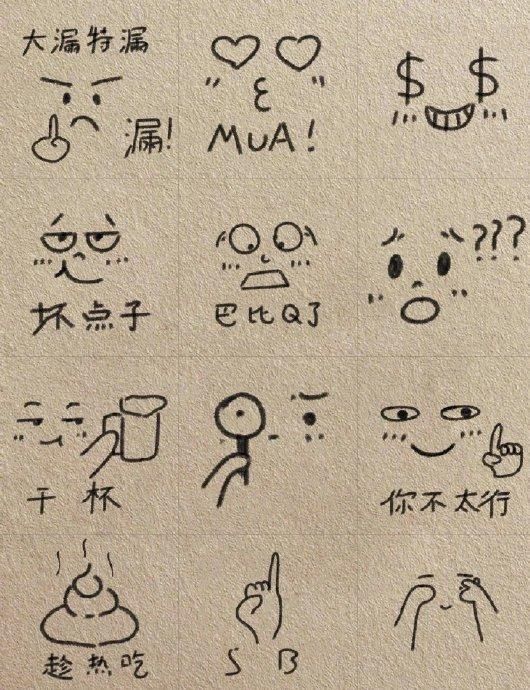 大漏特漏
漏!
MUA!
$ $
坏点子
巴比Q了
???
干杯
你不太行
趁热吃
S B